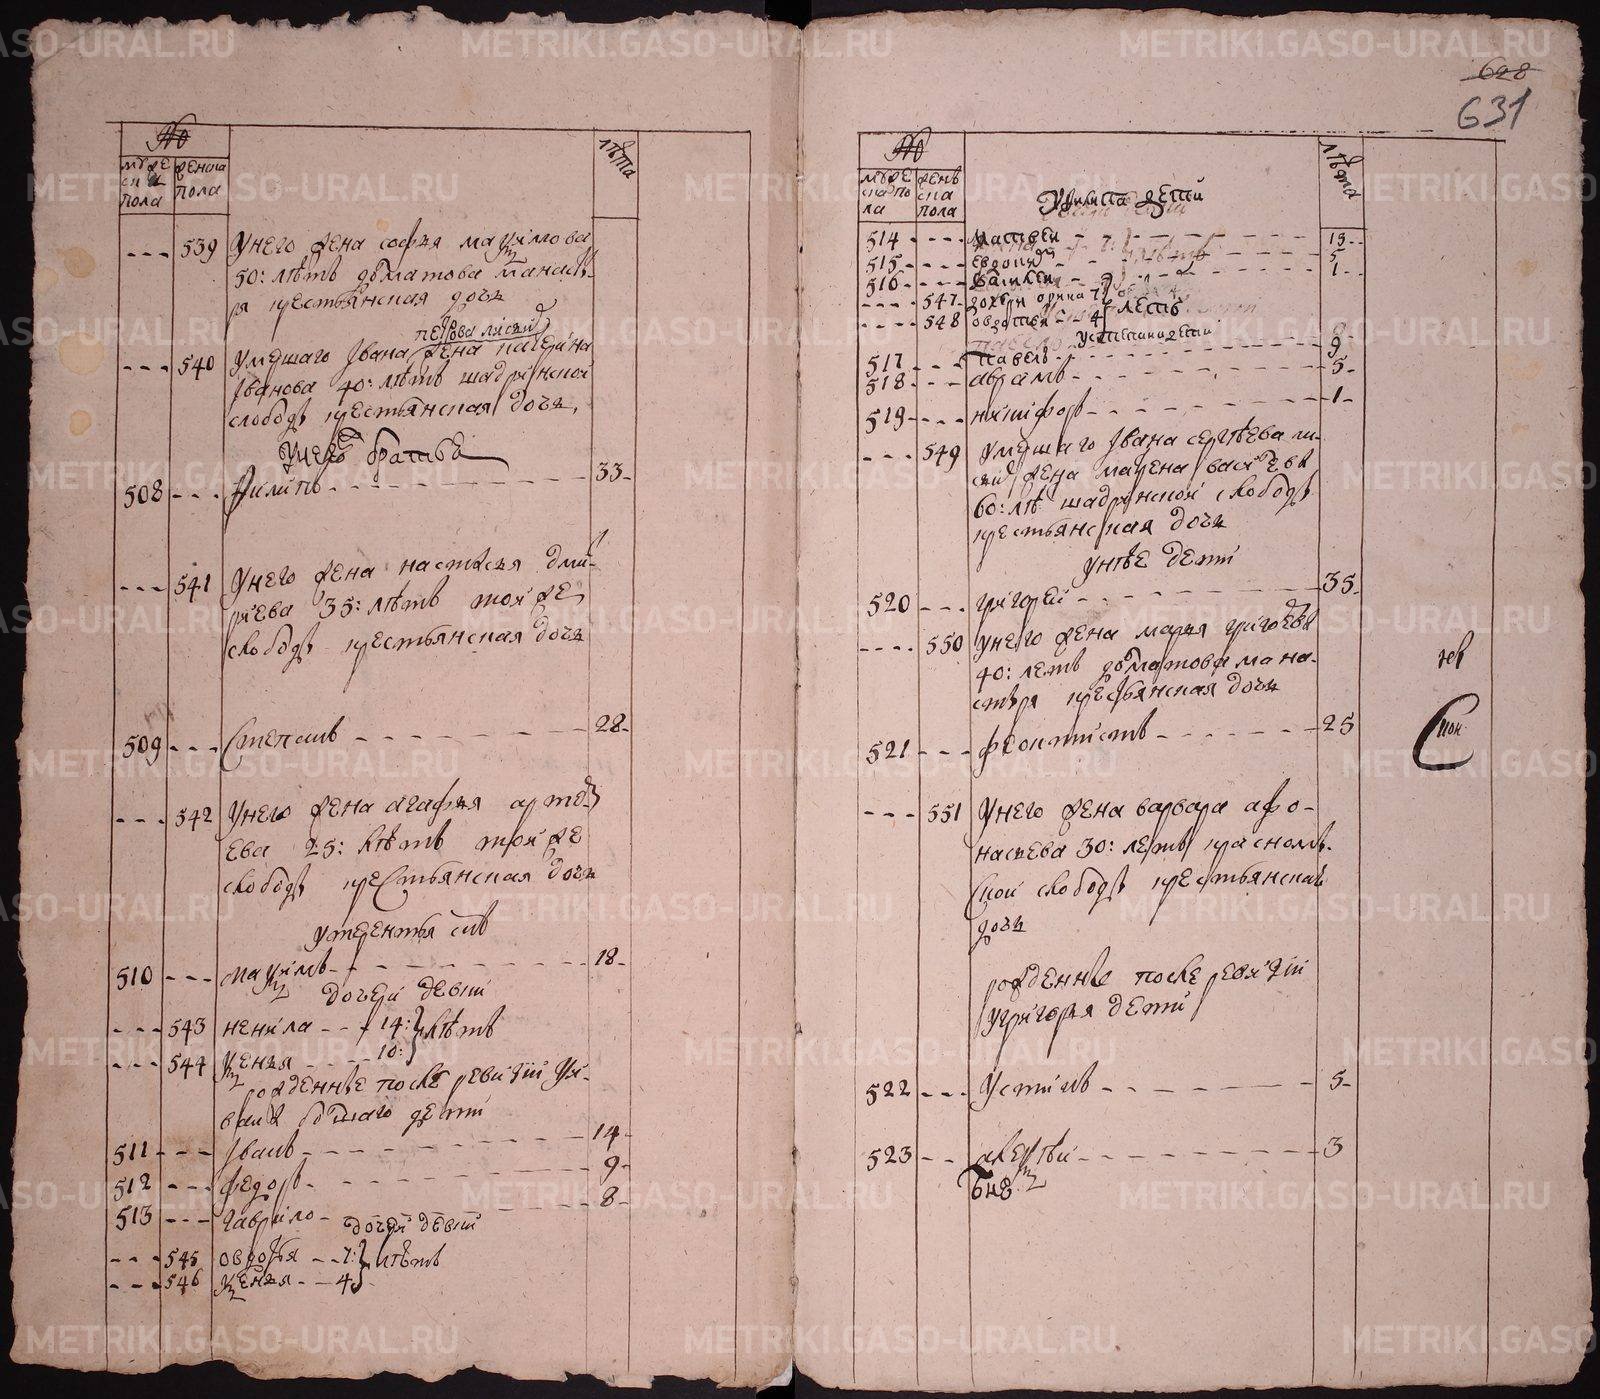 №
мужеска пола
женска пола
лѣта
--- 539 У него жена софья мазимова
50: лѣтъ доматова манасты-
ря крестьянская дочь
петрова лисьи
--- 540 Умершаго Ивана жена
Иванова 40: лѣтъ шадринской
слободы крестьянская дочь
У него братья
508 --- Филипъ 33
--- 541 У него жена настасья дми-
риева 35: лѣтъ той же
слободы крестьянская дочь
509 --- Степанъ 28
--- 542 У него жена агафья
ева 25: лѣтъ той же
слободы крестьянская дочь
у терентья сынъ
510 --- 18
дочери девки
--- 543 ненила -- 14: лѣтъ
--- 544 10:
рожденные после ревизии у и-
вана болшаго дети
511 --- Иванъ 14
512 --- федоръ 9
513 --- гаврило 8
дочери девки
--- 545 овдотья -- 7: лѣтъ
--- 546 -- 4
628
631
№
мужеска пола
женьска пола
лѣта
У филипа дети
514 --- Матвей 13
515 --- 5
516 --- 1
--- 547 дочери орина 7
--- 548 овдотья 4 летъ
У степана дети
517 --- павелъ 9
518 --- аврамъ 5
519 --- никифоръ 1
--- 549 Умершаго Ивана сергѣева ли-
сьи жена марена василева
60: лѣ шадринской слободы
крестьянская дочь
у нѣе дети
520 --- григорей 35
--- 550 У него жена марья григоева
40: летъ доматова мана-
стыря крестьянская дочь
521 --- феоктистъ 25
--- 551 У него жена варвара афо-
насьева 30: летъ красномы-
ской слободы крестьянская
дочь
рожденные после ревизии
у григорья дети
522 --- Устинъ 5
523 --- 3